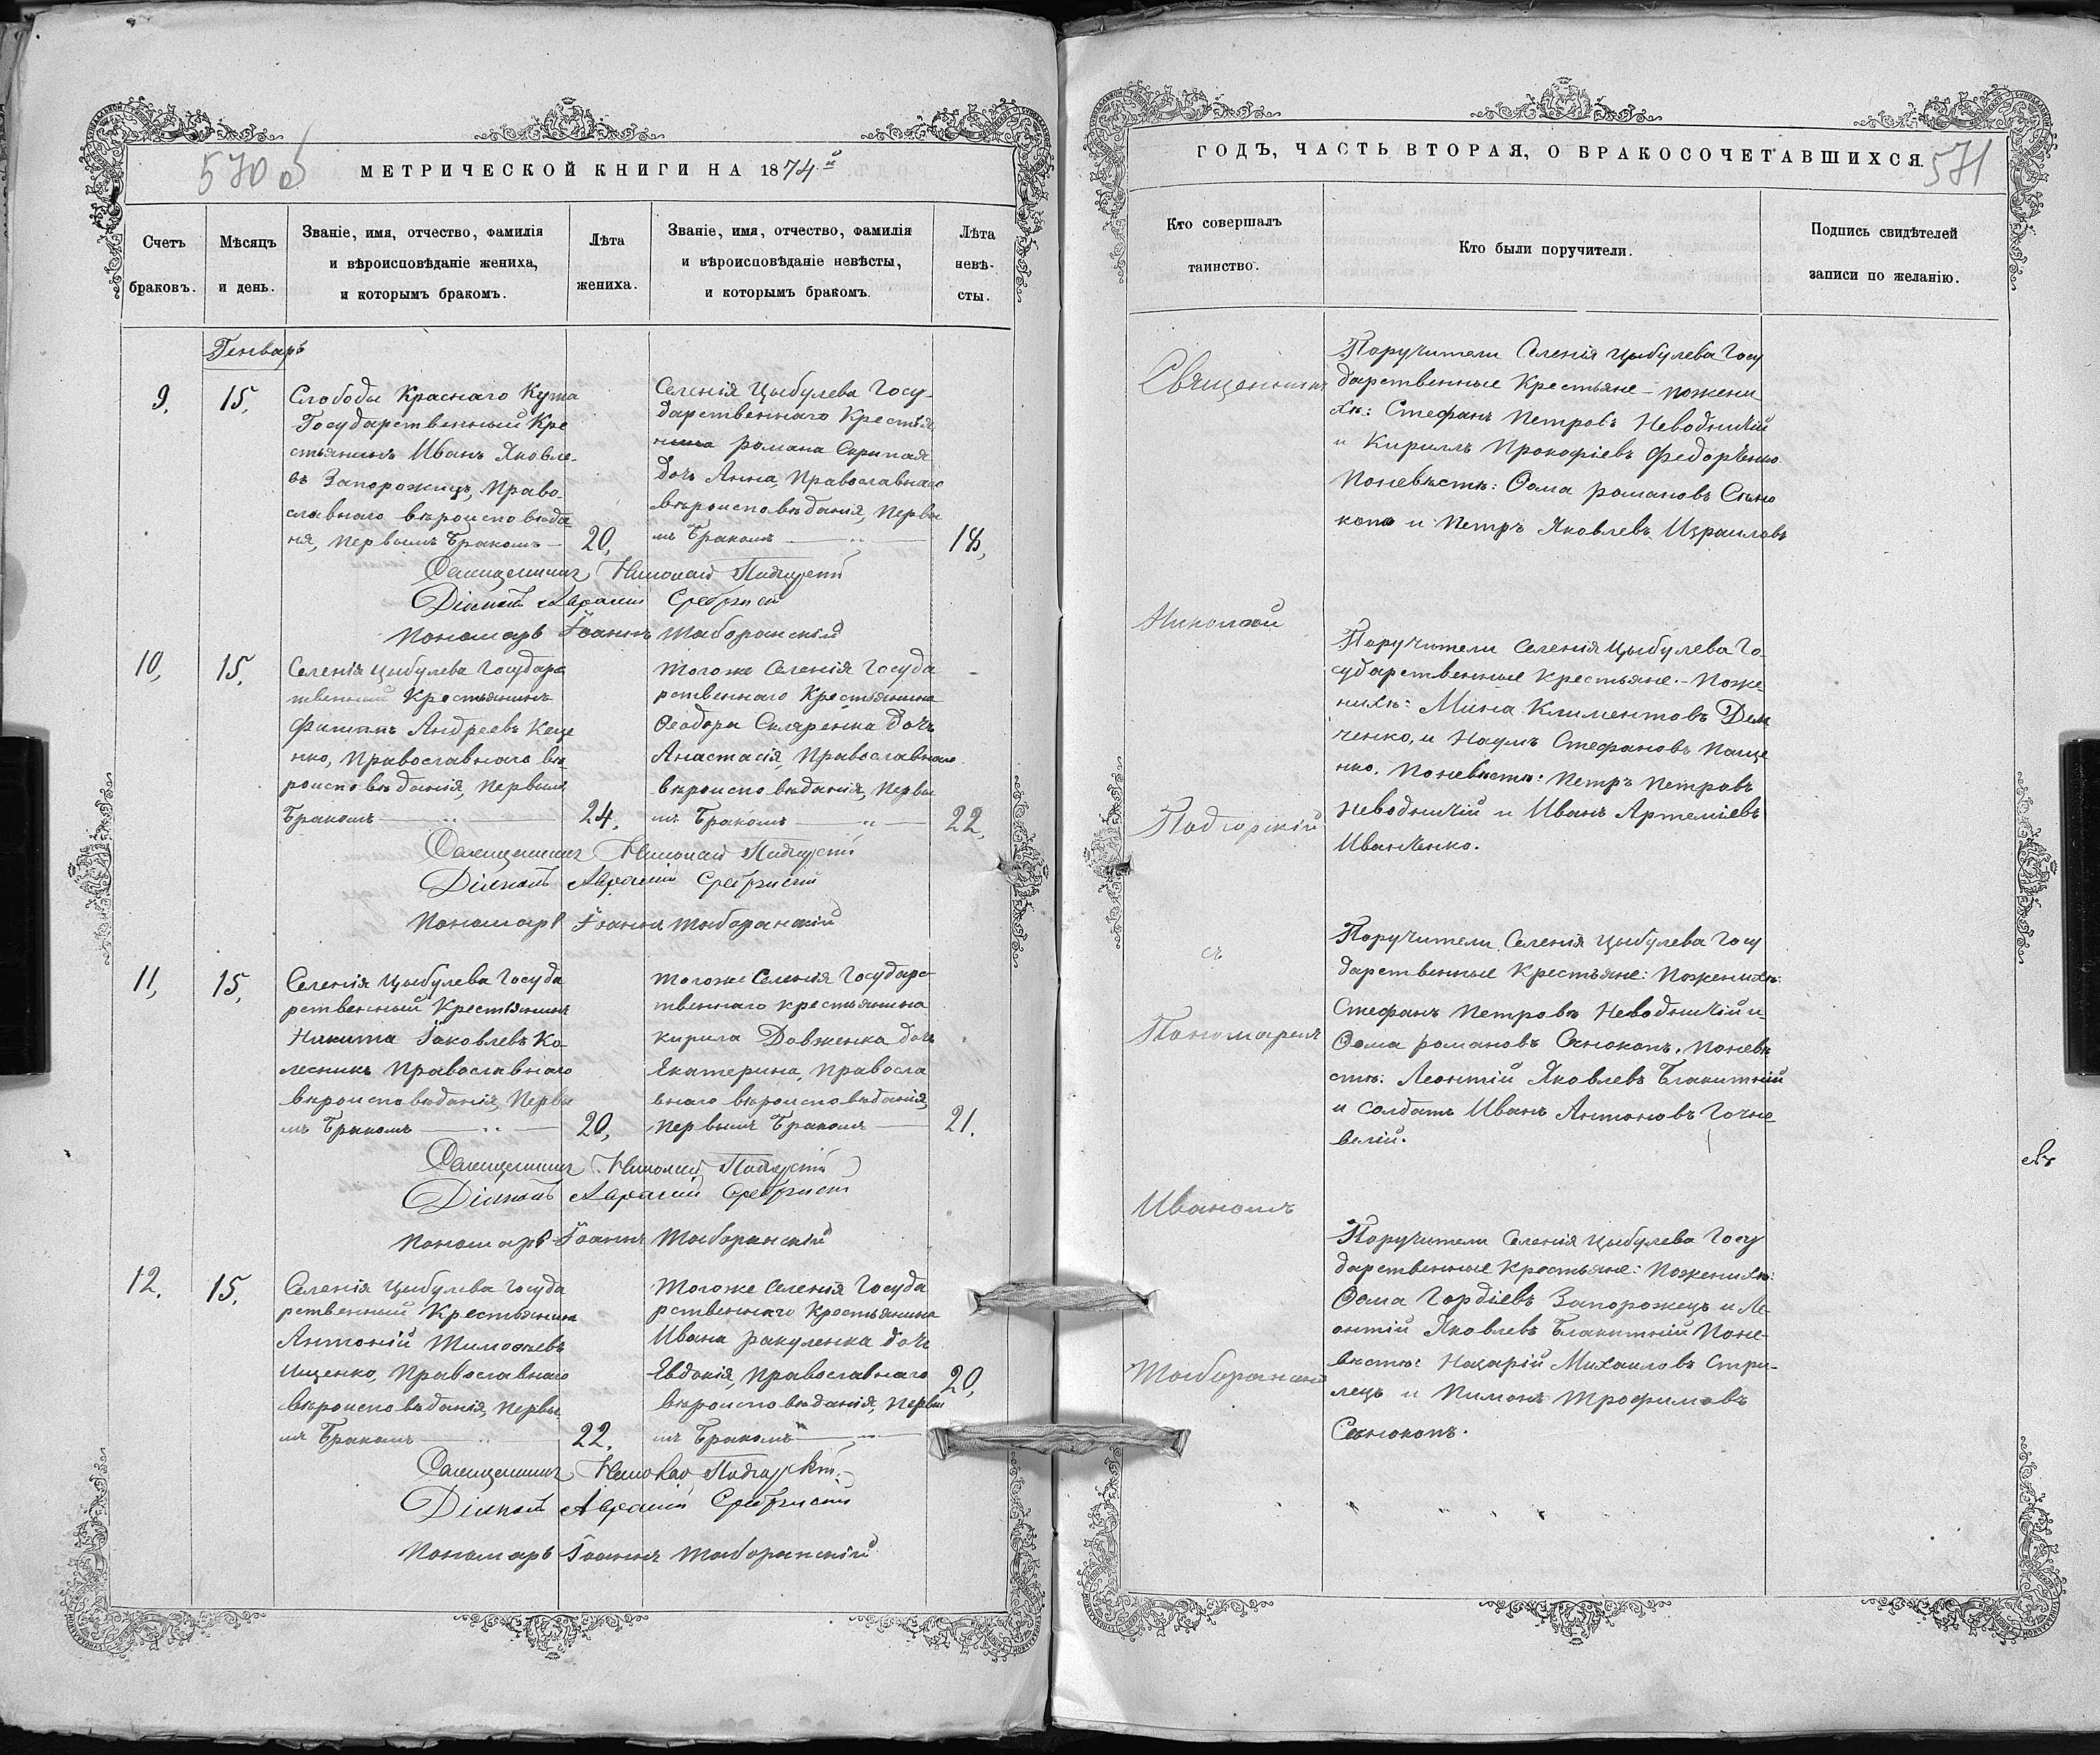 570 об
МЕТРИЧЕСКОЙ КНИГИ НА 1874й
Счетъ браковъ.
Мѣсяцъ и день.
Званіе, имя, отчество, фамилія
и вѣроисповѣданіе жениха,
и которымъ бракомъ.
Лѣта жениха.
Званіе, имя, отчество, фамилія
и вѣроисповѣданіе невѣсты,
и которымъ бракомъ.
Лѣта невѣ-
сты.
Генварь
9.
15.
Слободы Краснаго Кута
Государственный Кре
стьянинъ Иванъ Яковле-
въ Запорожецъ, Право-
славнаго вѣроисповѣда-
нія, первымъ бракомъ
20,
Селенія Цыбулева Госу-
дарственнаго Крестья
нина Романа Скрипая
дочь Анна, Православнаго
вѣроисповѣданія, первы
мъ бракомъ
18,
Священникъ Николай Подгурскій
Діаконъ Сребрискій
Пономарь Іоаннъ Таборанскій
10,
15.
Селенія Цыбулева Государс
твенный Крестьянинъ
Филиппъ Андреевъ Коце
нко, Православнаго вѣ-
роисповѣданія, первымъ
бракомъ
24.
Тогоже Селенія Госуда
рственнаго Крестьянина
Ѳеодора Скляренка дочь
Анастасія, Православнаго
вѣроисповѣданія, первы
мъ бракомъ
22.
Священникъ Николай Подгурскій
Діаконъ Сребрискій
Пономарь Іоаннъ Таборанскій
11,
15.
Селенія Цыбулева Госуда
рственный Крестьянинъ
Никита Іаковлевъ Ко-
лесникъ Православнаго
вѣроисповѣданія, первы
мъ бракомъ
20,
Тогоже Селенія Государс
твеннаго крестьянина
Кирила Довженка дочь
Екатерина, Правосла
внаго вѣроисповѣданія,
первымъ бракомъ
21.
Священникъ Николай Подгурскій
Діаконъ Сребрискій
Пономарь Іоаннъ Таборанскій
12.
15.
Селенія Цыбулева Госуда
рственный Крестьянинъ
Антоній Тимоѳѣевъ
Ищенко, Православнаго
вѣроисповѣданія, первы
мъ бракомъ
22.
Тогоже Селенія Госуда
рственнаго Крестьянина
Ивана Ракуленка дочь
Евдокія, Православнаго
вѣроисповѣданія, первы
мъ бракомъ
20,
Священникъ Николай Подгурскій
Діаконъ Сребрискій
Пономарь Іоаннъ Таборанскій
ГОДЪ, ЧАСТЬ ВТОРАЯ, О БРАКОСОЧЕТАВШИХСЯ.
571
Кто совершалъ
таинство.
Кто были поручители.
Подпись свидѣтелей
записи по желанію.
Священникъ
Николай
Подгорскій
съ
Пономаремъ
Иваномъ
Таборанскимъ
Поручители Селенія Цыбулева Госу
дарственные Крестьяне – по жени
хѣ: Стефанъ Петровъ Неводничій
и Кириллъ Прокофіевъ Федорченко
По невѣстѣ: Ѳома Романовъ Сѣно
копъ и Петръ Яковлевъ Израиловъ
Поручители Селенія Цыбулева Го-
сударственные Крестьяне. – По же-
нихѣ: Мина Климентовъ Дем
ченко, и Наумъ Стефановъ Паще
нко. По невѣстѣ: Петръ Петровъ
Неводничій и Иванъ Артеміевъ
Иванченко.
Поручители Селенія Цыбулева Госу
дарственные Крестьяне: По женихѣ:
Стефанъ Петровъ Неводничій и
Ѳома Романовъ Сѣнокопъ. По невѣ
стѣ: Леонтій Яковлевъ Блакитній
и солдатъ Иванъ Антоновъ
Поручители Селенія Цыбулева Госу
дарственные Крестьяне: По женихѣ:
Ѳома Гордіевъ Запорожецъ и Ле-
онтій Яковлевъ Блакитній По не-
вѣстѣ: Назарій Михаиловъ Стри-
лецъ и Пименъ Трофимовъ
Сѣнокопъ.